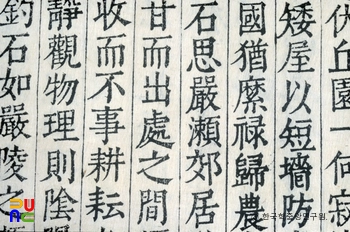 伏丘園一何寂
矮屋以短墻防
國猶縻禄歸農
石思嚴瀨郊居
甘而出處之間
收而不事耕耘
靜觀物理則陰
釣石如嚴陵之
한국학중앙연구원